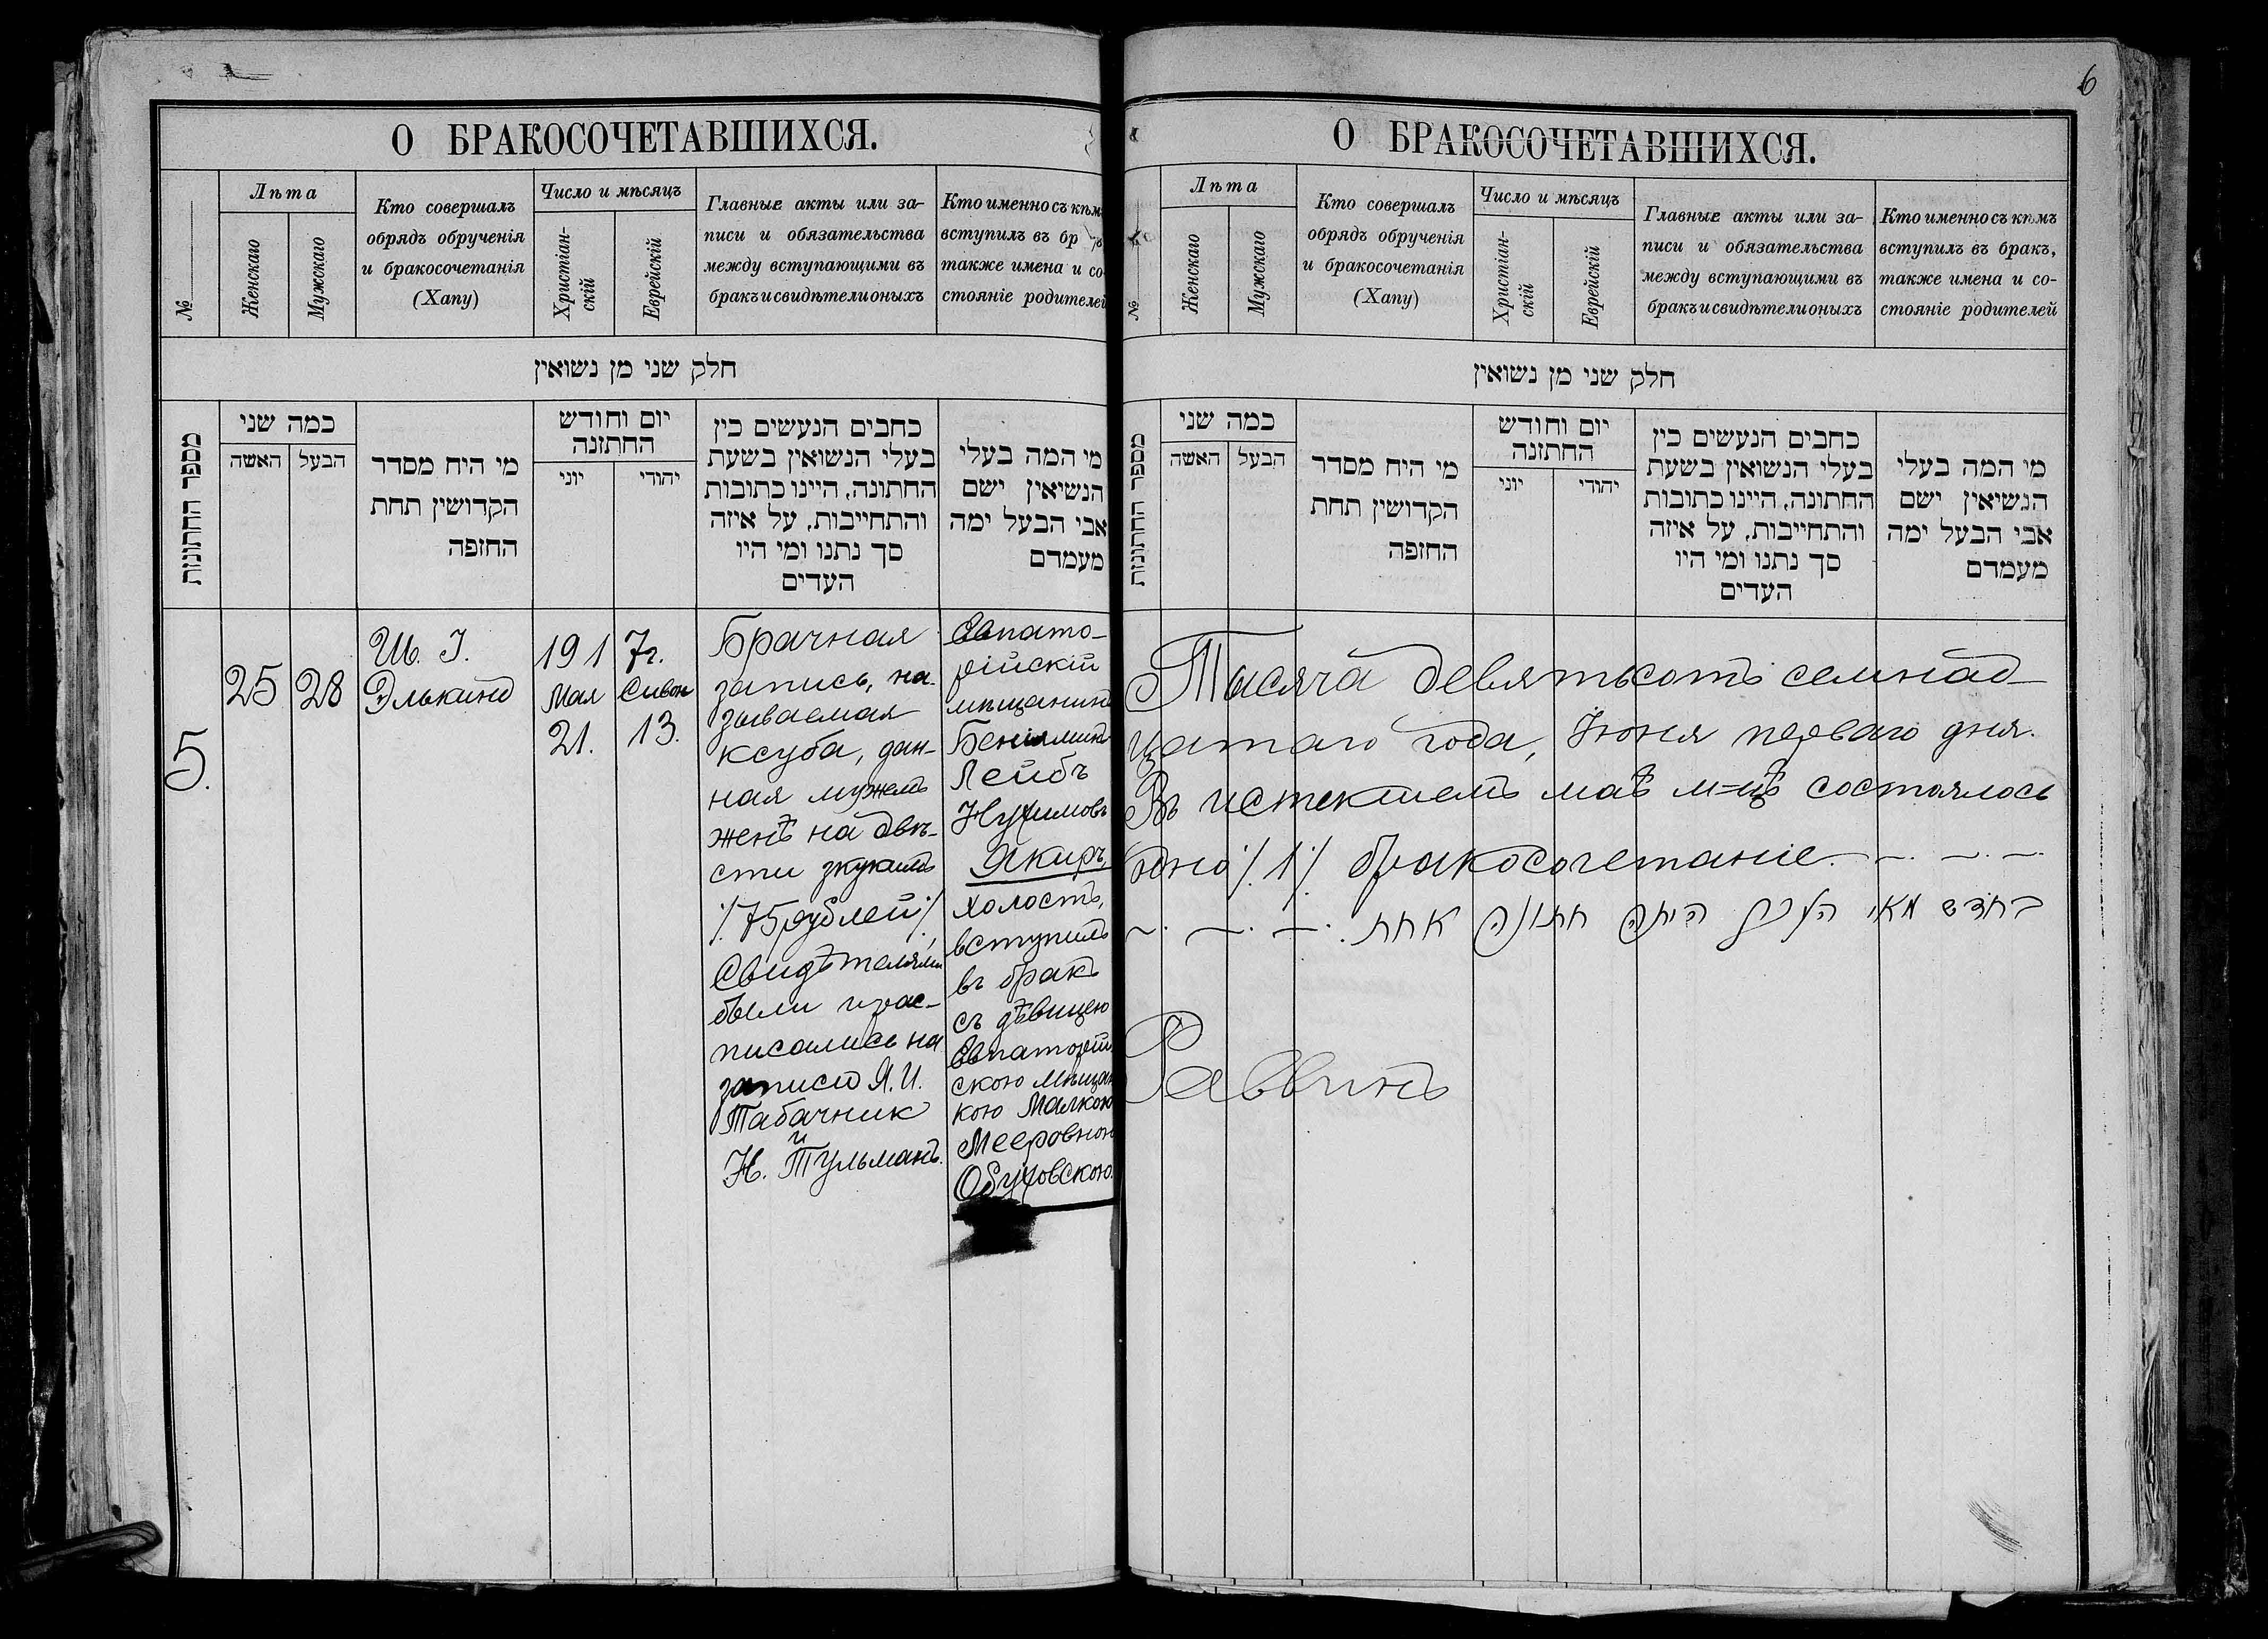 О БРАКОСОЧЕТАВШИХСЯ.
№
Лѣта
Женскаго
Мужскаго
Кто совершалъ
обрядъ обрученія
и бракосочетанія
(Хапу)
Число и мѣсяцъ
Христіан-
скій
Еврейскій
Главные акты или за-
писи и обязательства
между вступающими въ
бракъ и свидѣтели оныхъ
Кто именно съ кѣм
вступилъ въ бр
также имена и со
стояніе родителей
חלק שני מן נשואין
מספר החתונות
כמה שני
האשה
הבעל
מי היח מסדר
הקדושין תחת
החזפה
יום וחודש
החתזנה
יוני
יהודי
כחבים הנעשים כין
בעלי הנשואין בשעת
החתונה, היינו כתובות
והתחייבות, על איזה
סך נתנו ומי היו
העדים
מי המה בעלי
הנשיאין ישם
אבי הבעל ימה
מעמדם
5.
25
28
Ш. І.
Элькинд
1917г.
Мая
21.
Сивон
13.
Брачная
запись, на-
зываемая
ксуба, дан-
ная мужемъ
женѣ на двѣ-
сти зкукимъ
/75 рублей/,
Свидѣтелями
были и рас-
писались на
записи Я. И.
Табачник
и
Н. Тульманъ.
Евпато-
рійскій
мѣщанинъ
Беніяминъ
Лейбъ
Нухимовъ
Якиръ,
холостъ,
вступилъ
въ бракъ
съ дѣвицею
Евпаторій
скою мѣщан
кою Малкою
Мееровною
Обуховскою.
6
О БРАКОСОЧЕТАВШИХСЯ.
№
Лѣта
Женскаго
Мужскаго
Кто совершалъ
обрядъ обрученія
и бракосочетанія
(Хапу)
Число и мѣсяцъ
Христіан-
скій
Еврейскій
Главные акты или за-
писи и обязательства
между вступающими въ
бракъ и свидѣтели оныхъ
Кто именно съ кѣмъ
вступилъ въ бракъ,
также имена и со-
стояніе родителей
חלק שני מן נשואין
מספר החתונות
כמה שני
האשה
הבעל
מי היח מסדר
הקדושין תחת
החזפה
יום וחודש
החתזנה
יוני
יהודי
כחבים הנעשים כין
בעלי הנשואין בשעת
החתונה, היינו כתובות
והתחייבות, על איזה
סך נתנו ומי היו
העדים
מי המה בעלי
הנשיאין ישם
אבי הבעל ימה
מעמדם
Тысяча девятьсотъ семнад-
цатаго года, Іюня перваго дня.
Въ истекшемъ маѣ м-цѣ состоялось
одно /1/ бракосочетаніе.
בחדש מאי העבר היתה חתונה אחת.
Раввинъ